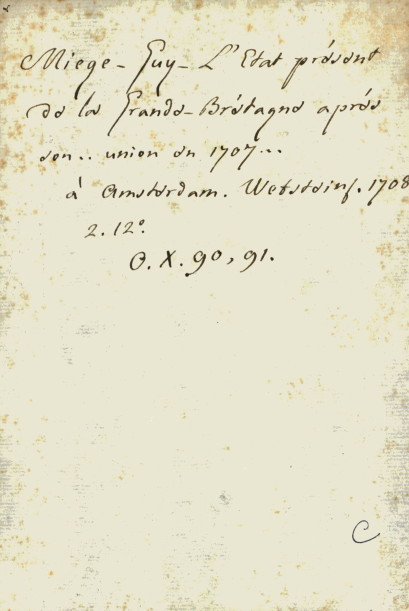 Miege - Guy - L'Etat présent
de la Grande-Brétagne aprés
son.. union en 1707...
à Amsterdam. Wetsteins. 1708
2. 12°.
O. X. 90, 91.
C